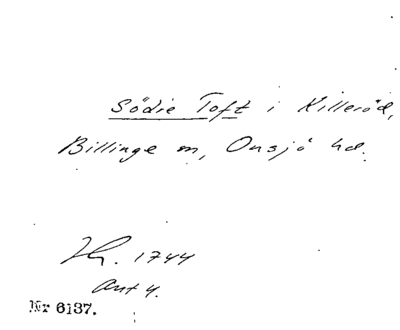 Södie Toft i Killeröd,
Billinge sn, Onsjö hd.
Jb. 1744
ant 4.
Nr 6137.